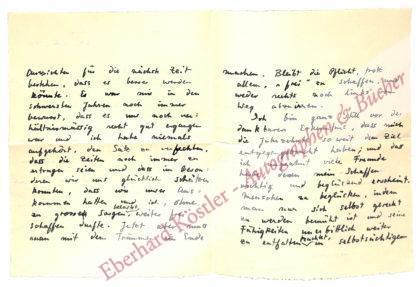 Aussichten für die nächste Zeit
bestehen, dass es besser werden
könnte. Es war mir in den
schwersten Jahren noch immer
bewusst, dass es uns noch ver-
hältnismässig recht gut ergangen
war und ich habe niemals
aufgehört, den Satz zu verfechten,
dass die Zeiten noch immer zu
ertragen seien und dass
wir uns glücklich schätzen
konnten, dass wir unser Aus-
kommen hatten und ich, ohne
zu grosse Sorgen, weiter
schaffen durfte. Jetzt aber muss
man mit den Trümmern zu Ende
machen. Bleibt die Pflicht, trotz
allem, "frei" zu schaffen und
weder rechts noch links vom
Weg abzuirren.
Ich bin ganz still vor der
dankbaren Erkenntnis, dass mich
die Jahrzehnte so weit dem Ziel
entgegengeführt haben; und das
ich viele Freunde
habe, denen mein Schaffen
wichtig und beglückend erscheint.
Menschen zu beglücken indem
man nur sich selbst gerecht
zu werden bemüht ist und seine
Fähigkeiten unerbittlich weiter
zu entfalten, in selbstsüchtigem
Eberhard Köstler - Autographen & Bücher